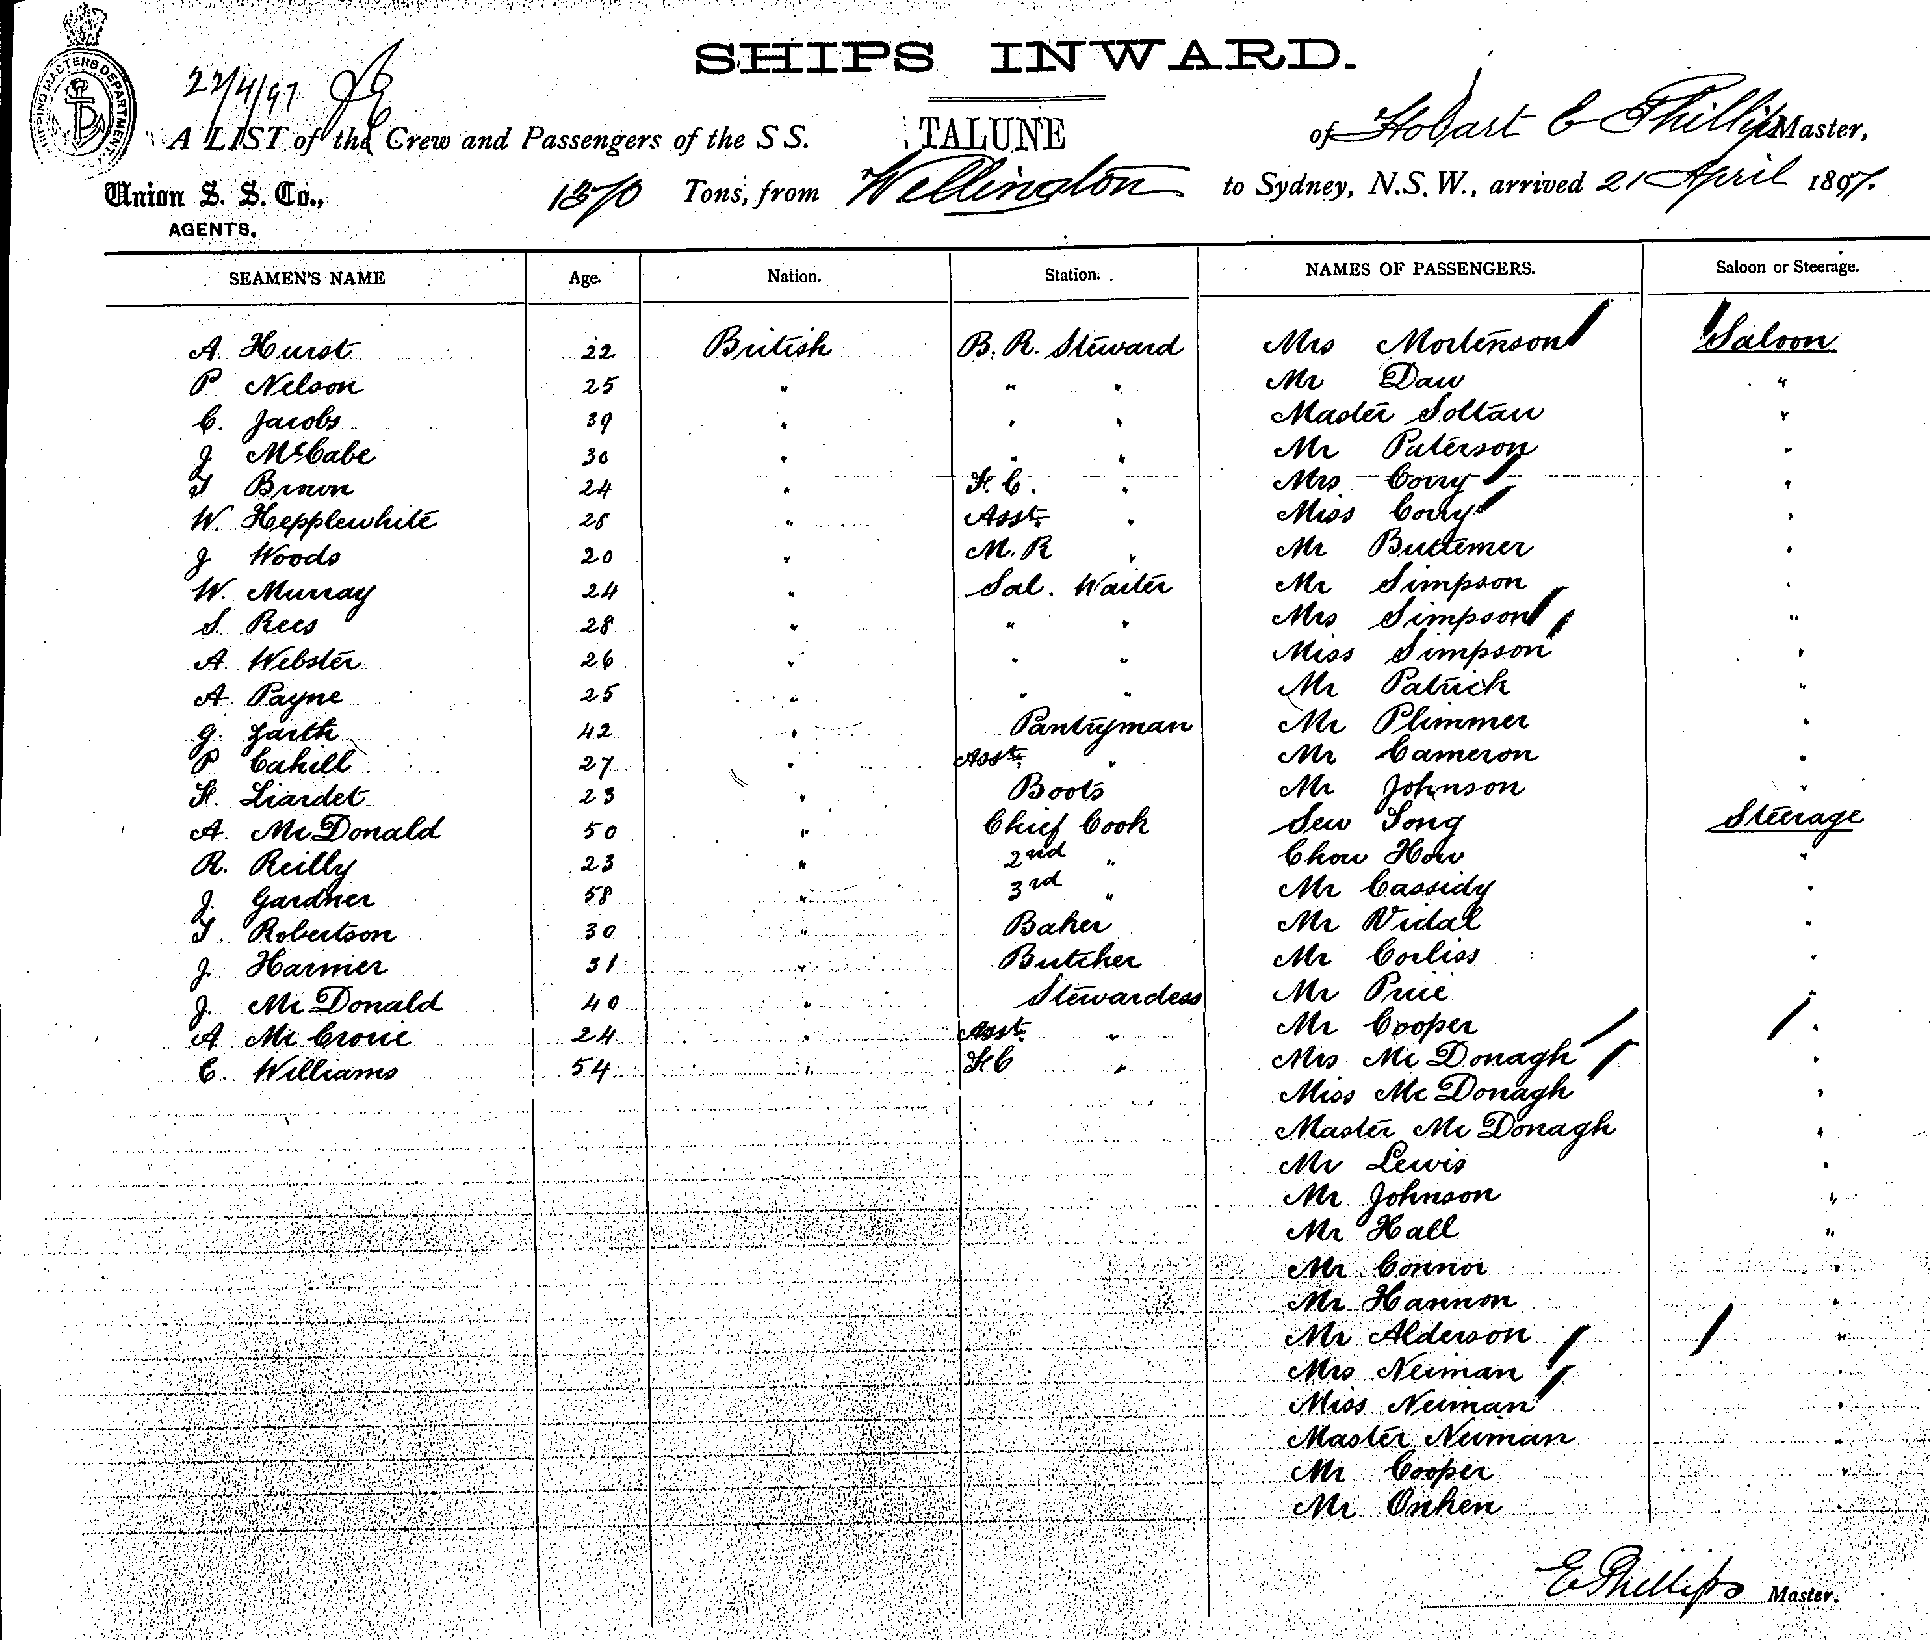 SHIPS INWARD.
SHIPPING MASTERS DEPARTMENT
22/4/97
A LIST of the Crew and Passengers of the S S. TALUNE of Hobart E Phillips Master,
Union S. S. Co., 1370 Tons, from Wellington to Sydney, N.S.W., arrived 21 April 1897.
AGENTS.
SEAMEN'S NAME Age. Nation. Station. NAMES OF PASSENGERS. Saloon or Steerage.
A. Hurst 22 British B. R. Steward Mrs Mortenson Saloon
P Nelson 25 " " " Mr Daw "
C. Jacobs 39 " " " Master Soltau "
J McCabe 30 " " " Mr Paterson "
T Brown 24 " F. C. " Mrs Corry "
W. Hepplewhite 28 " Asst. " Miss Corry "
J Woods 20 " M. R " Mr Buttemer "
W. Murray 24 " Sal. Waiter Mr Simpson "
S. Rees 28 " " " Mrs Simpson "
A. Webster 26 " " " Miss Simpson "
A Payne 25 " " " Mr Patrick "
G. Garth 42 " Pantryman Mr Plimmer "
P Cahill 27 " Asst. " Mr Cameron "
F. Liardet 23 " Boots Mr Johnson "
A. McDonald 50 " Chief Cook Sew Song Steerage
R. Reilly 23 " 2nd " Chow How "
J. Gardner 58 " 3rd " Mr Cassidy "
T. Robertson 30 " Baker Mr Vidal "
J. Harmer 31 " Butcher Mr Corliss "
J. McDonald 40 " Stewardess Mr Price "
A McCrorie 24 " Asst. " Mr Cooper "
E. Williams 54 " F C " Mrs McDonagh "
Miss McDonagh "
Master McDonagh "
Mr Lewis "
Mr Johnson "
Mr Hall "
Mr Connor "
Mr Hannon "
Mr Alderson "
Mrs Neiman "
Miss Neiman "
Master Neiman "
Mr Cooper "
Mr Onken "
E Phillips Master.